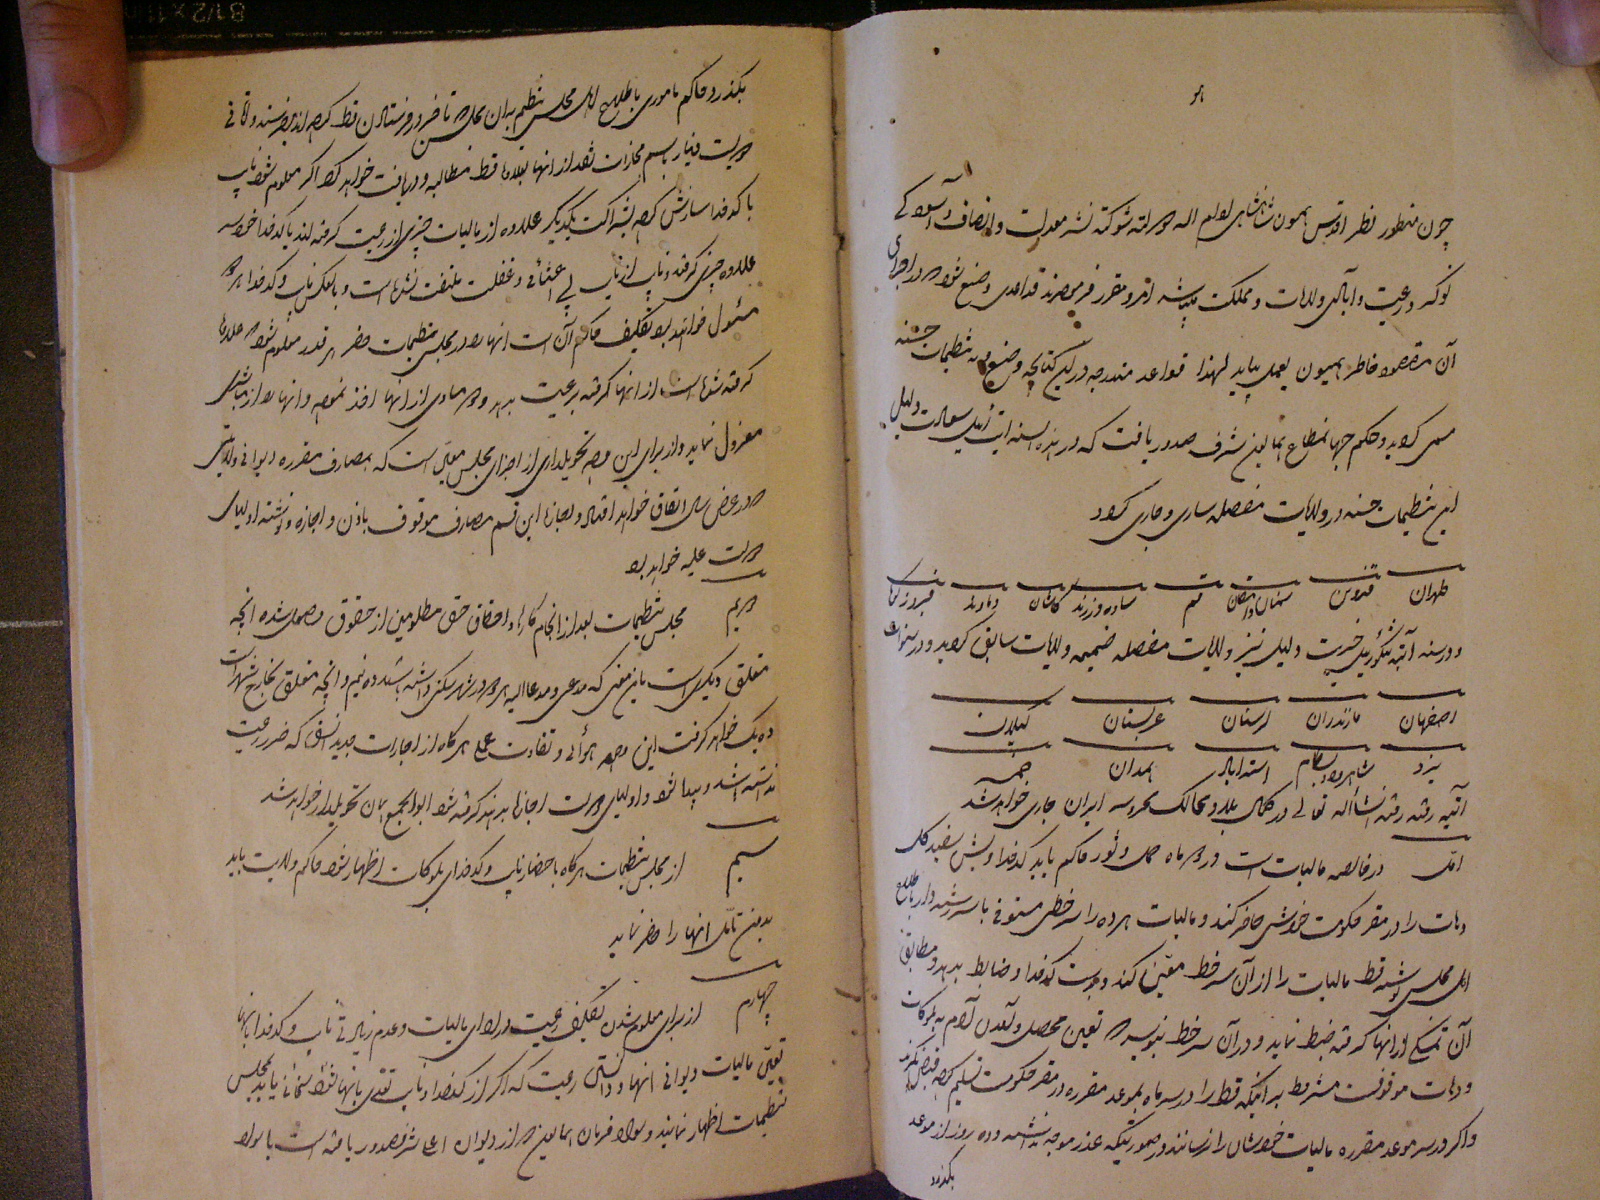 هو
چون منظور نظر اقدس همیون شاهنشاهی ادام الله دولته و شوکته نشر معدلت و انصاف و آسودگی
نوکر و رعیت و اهالی ولایات و مملکت میباشد امر و مقرر فرمودند قواعدی وضع شود که در اجرای
آن مقصود خاطر همیون بعمل بیاید لهذا قواعد مندرجه در این کتابچه وضع و به تنظیمات حسنه
مسمی گردید و حکم جهانمطاع همایون شرف صدور یافت که در هذه السنه ایت ئیل سعادت دلیل
این تنظیمات حسنه در ولایات مفصله ساری و جاری گردد
طهران قزوین سمنان و دامغان قم ساوه و زرند کاشان دماوند فیروزکوه
و در سنه آتیه تنگوزئیل خیریت دلیل نیز ولایات مفصله ضمیمه ولایات سابق گردید و در سنوات
اصفهان مازندران لرستان عربستان گیلان
یزد شاهرود بسطام استراباد همدان خمسه
آتیه رفته رفته انشاءالله تعالی در کل بلاد و ممالک محروسه ایران جاری خواهد شد
اول در خالصه مالیات است در دو ماه حمل و ثور حاکم باید کدخدا و ریش سفید کل
دهات را در مقر حکومت خودش حاضر کند و مالیات هر ده را سرخطی مستوفی یا سررشته دار باطلاع
اهل مجلس نوشته قسط مالیات را از آن سرخط معین کند و بدست کدخدا و ضابط بدهد و مطابق
آن تمسکی از آنها گرفته ضبط نماید و در آن سرخط بنویسد که تعیین محصل و آمدن آدم به بلوکات
و دهات موقوفست مشروط بر اینکه قسط را در سر ماه بموعد مقرره در مقر حکومت تسلیم کرده قبض بگیرند
و اگر در سر موعد مقرره مالیات خودشان را نرسانند در صورتیکه عذر موجه نداشته و ده روز از موعد
بگذرد
بگذرد حاکم ماموری باطلاع اهل مجلس تنظیم به آن محل تا ضرر فرستادن قسط کرده اند بفرستد و
دویست دینار باسم مجازات از آنها بعلاوه قسط مطالبه و دریافت خواهد کرد اگر معلوم شود نایب
با کدخدا سازش کرده بشراکت یکدیگر علاوه از مالیات چیزی از رعیت گرفته اند یا کدخدا خودسر
علاوه چیزی گرفته و نایب از بی اعتنائی و غفلت ملتفت نشده است و بالعکس نایب و کدخدا هر دو
مسئول خواهند بود تکلیف حاکم آن است آنها را در مجلس تنظیمات حاضر هر قدر معلوم شود که علاوه
گرفته شده است از آنها گرفته برعیت بدهد و دو مساوی از آنها اخذ نموده و آنها را از مباشری
معزول نماید و از برای این وجه تحویلداری از اجزای مجلس معین است که بمصارف مقرره دیوانی ولایتی
که در عرض سال اتفاق خواهد افتاد و اجازه این قسم مصارف موقوف باذن و اجازه و نوشته اولیای
دولت علیه خواهد بود
دویم مجلس تنظیمات بعد از انجام کارها و احقاق حق مظلومین از حقوق وصول شده آنچه
متعلق دیگری است باین معنی که مدعی و مدعاالیه هر دو در شهر سکنی داشته باشند ده نیم و آنچه متعلق بخارج شهر است
ده یک خواهد گرفت این وجه هوائی و تفاوت عمل هر گاه از اجارات جدید النسق که ضرر رعیت
نداشته باشد پیدا شود و اولیای دولت اجازه بدهند گرفته شود ابوابجمع همان تحویلدار خواهد شد
سیم از مجلس تنظیمات هر گاه باحضار نایب و کدخدای بلوکات اظهار شود حاکم ولایت باید
بدون تامل آنها را حاضر نماید
چهارم از برای معلوم شدن تکلیف رعیت در ادای مالیات و عدم زیادتی نایب و کدخدا به آنها
تعیین مالیات دیوانی آنها و دانستن رعیت که اگر از کدخدا و نایب تعدی به آنها شود شخصا باید بمجلس
تنظیمات اظهار نمایند و سواد فرمان همایون که از دیوان اعلی شرف صدور یافته است با سواد